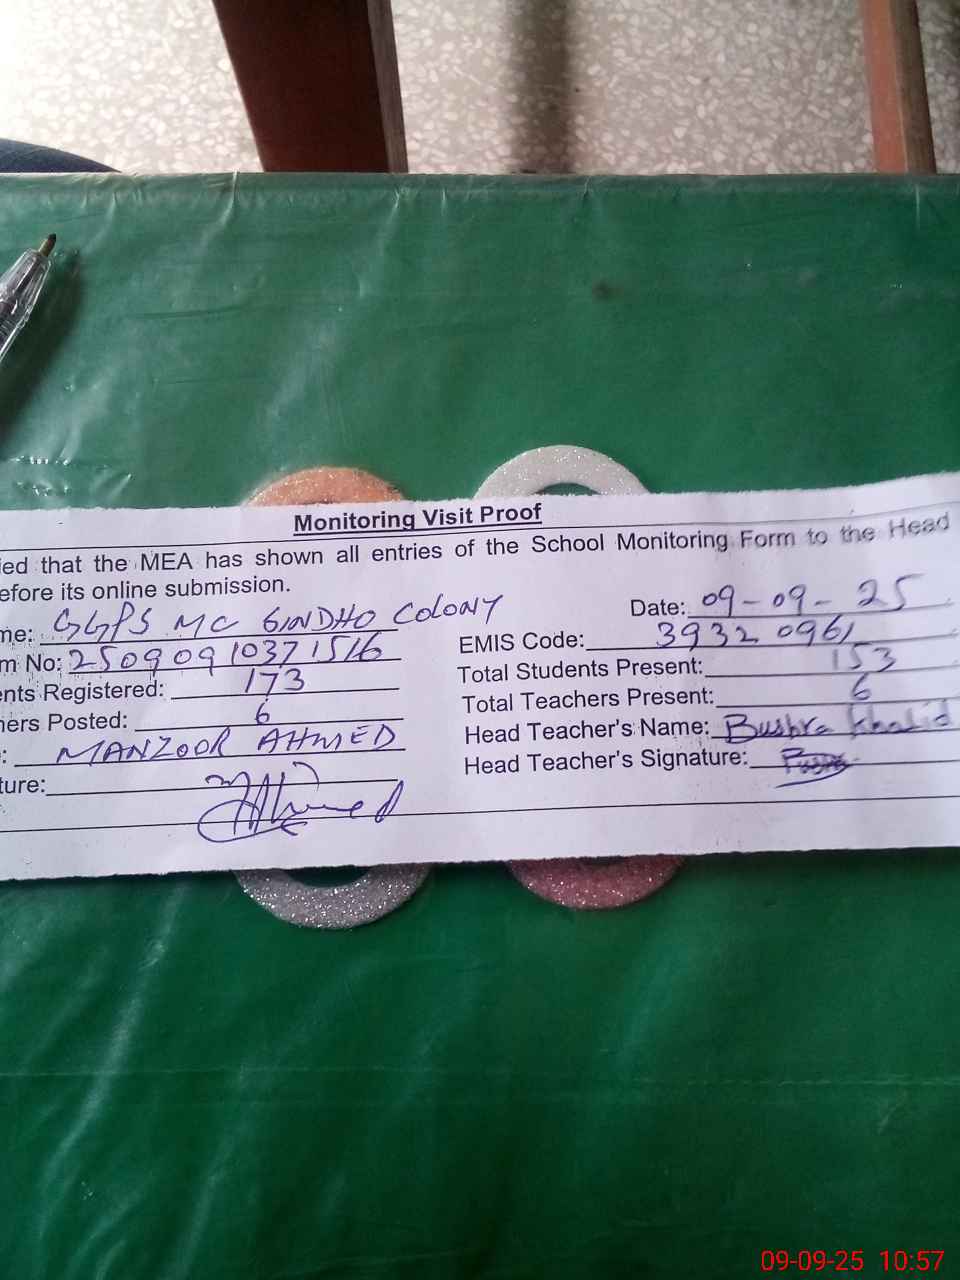 Monitoring Visit Proof
ied that the MEA has shown all entries of the School Monitoring Form to the Head
efore its online submission.
me: GGPS MC SINDHO COLONY Date: 09-09-25
m No: 2509091037 1516 EMIS Code: 39320961
ents Registered: 173 Total Students Present: 153
hers Posted: 6 Total Teachers Present: 6
: MANZOOR AHMED Head Teacher's Name: Bushra Khalid
ture: Head Teacher's Signature:
09-09-25 10:57